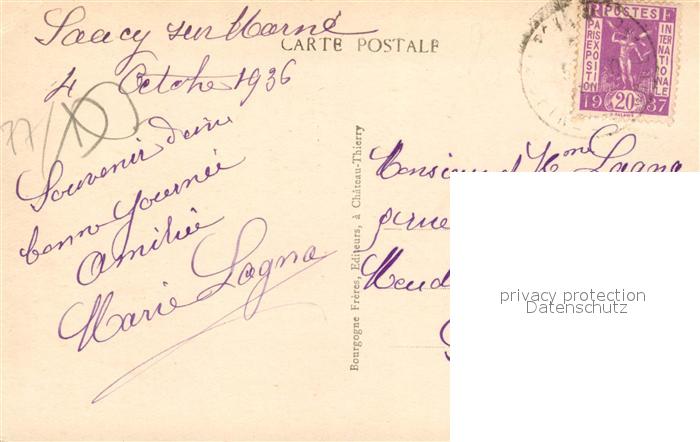 Saacy sur Marne
CARTE POSTALE
4 Octobre 1936
77/
Souvenir d'une
bonne journée
Amitiés
Marie Lagna
Bourgogne Frères, Editeurs, à Château-Thierry
R POSTES F
PARIS EXPOSITION
INTERNATIONALE
20c
1937
Monsieur et Mme Lagna
privacy protection
Datenschutz